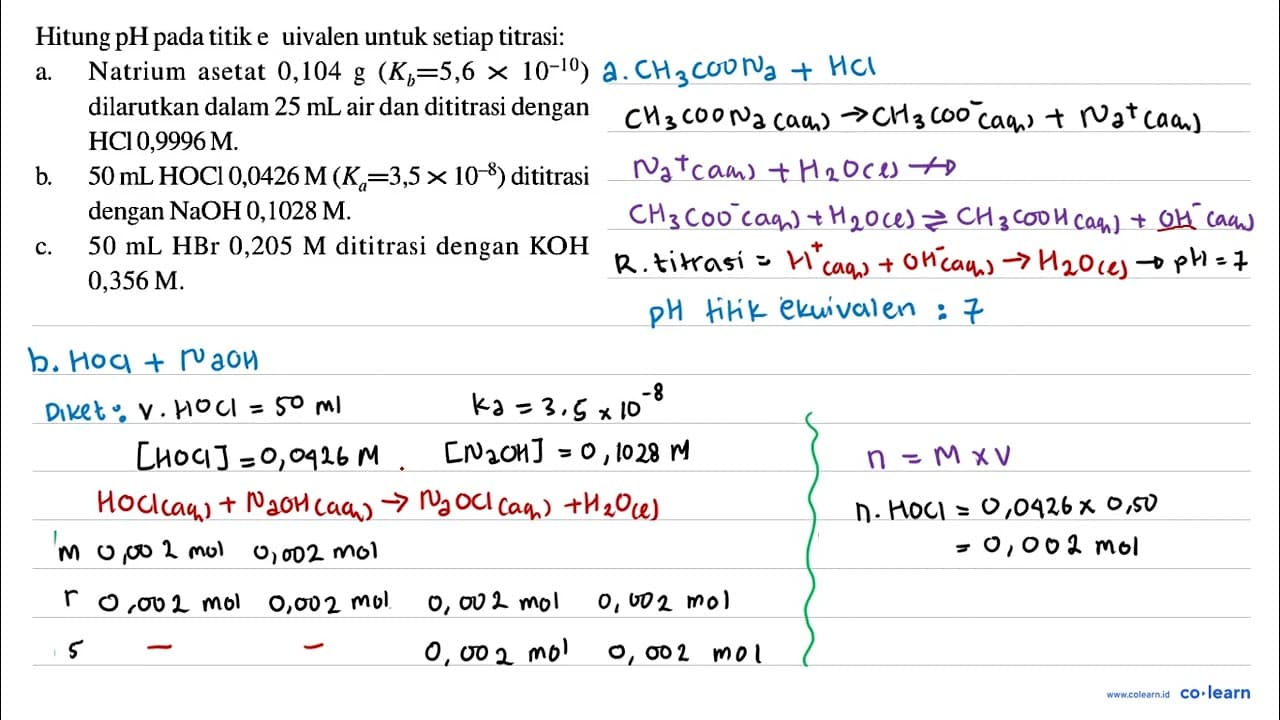 Hitung pH pada titik e uivalen untuk setiap titrasi:
a. Natrium asetat 0,104 g (K_b=5,6 × 10⁻¹⁰)
dilarutkan dalam 25 mL air dan dititrasi dengan
HCl 0,9996 M.
b. 50 mL HOCl 0,0426 M (K_a=3,5 × 10⁻⁸) dititrasi
dengan NaOH 0,1028 M.
c. 50 mL HBr 0,205 M dititrasi dengan KOH
0,356 M.
a. CH₃COONa + HCl
CH₃COONa(aq) → CH₃COO⁻(aq) + Na⁺(aq)
Na⁺(aq) + H₂O(l) ↛
CH₃COO⁻(aq) + H₂O(l) ⇌ CH₃COOH(aq) + OH⁻(aq)
R. titrasi = H⁺(aq) + OH⁻(aq) → H₂O(l) → pH = 7
pH titik ekuivalen : 7
b. HOCl + NaOH
Diket : V. HOCl = 50 ml ka = 3.5 × 10⁻⁸
[HOCl] = 0,0426 M . [NaOH] = 0,1028 M
HOCl(aq) + NaOH(aq) → NaOCl(aq) + H₂O(l)
m 0,002 mol 0,002 mol
r 0,002 mol 0,002 mol 0,002 mol 0,002 mol
s – – 0,002 mol 0,002 mol
n = M × V
n. HOCl = 0,0426 × 0,50
= 0,002 mol
www.colearn.id co·learn